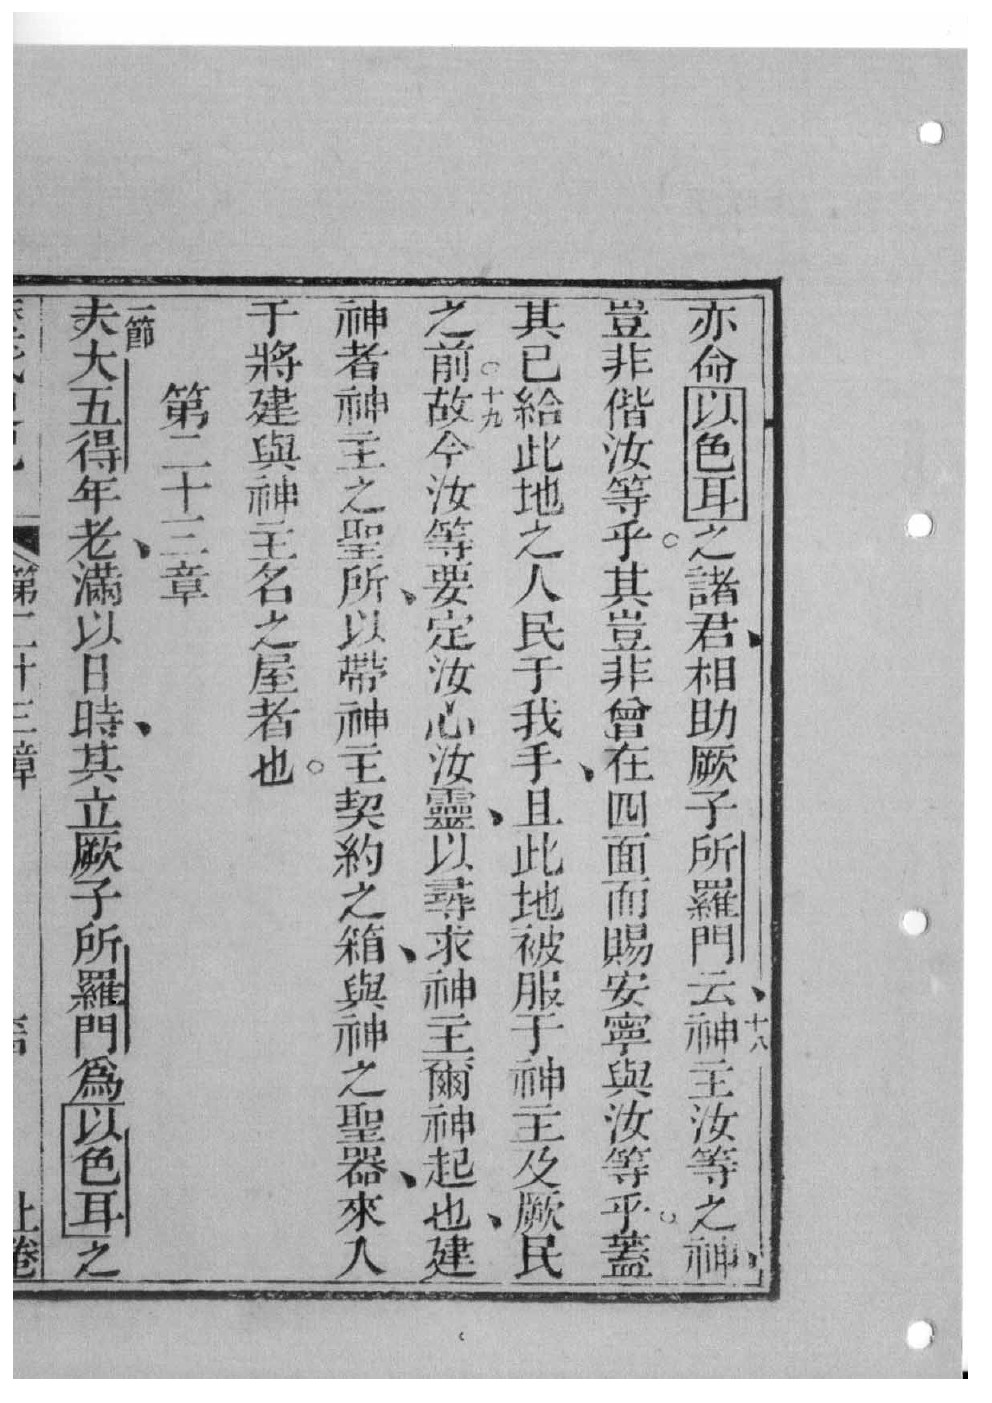 亦命以色耳之諸君相助厥子所羅門云、十八神主汝等之神、
豈非偕汝等乎。其豈非曾在四面而賜安寧與汝等乎。蓋
其已給此地之人民于我手、且此地被服于神主及厥民
之前。十九故今汝等要定汝心汝靈、以尋求神主爾神起也、建
神者神主之聖所、以帶神主契約之箱、與神之聖器、來入
于將建與神主名之屋者也。
第二十三章
一節夫大五得年老、滿以日時、其立厥子所羅門為以色耳之
第二十三章
上卷